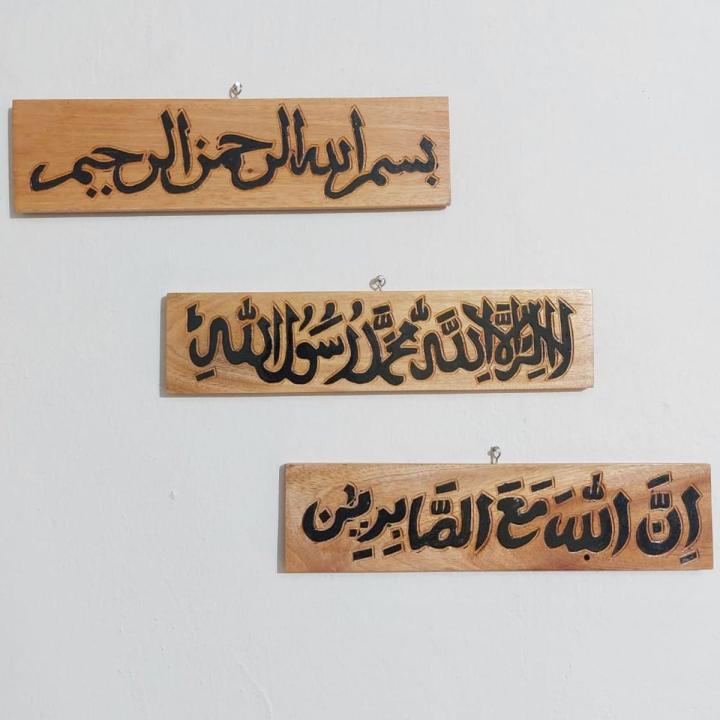 بسم الله الرحمن الرحيم
لا إله إلا الله محمد رسول الله
إن الله مع الصابرين